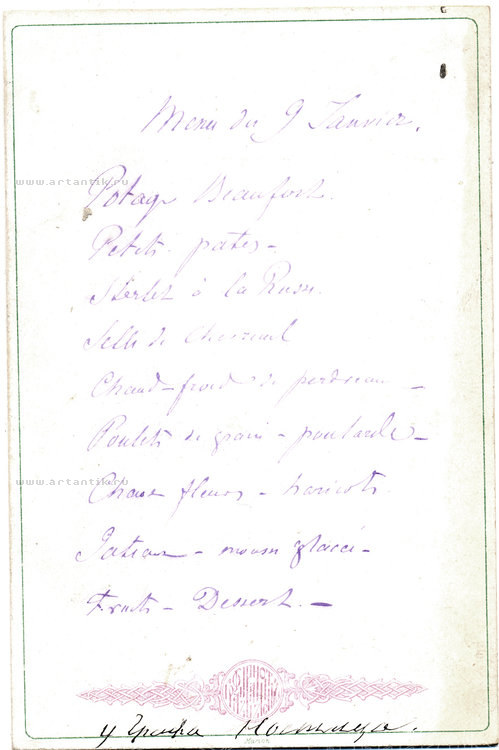 Menu du 9 Janvier.
www.artantik.ru
Potage Beaufort.
Petits pates -
Sterlet à la Russe.
Selle de Chevreuil
Chaud-froid de perdreau -
Poulets de grain - poularde -
www.artantik.ru
Choux fleurs - haricots
Gateau - mousse glacée -
Fruits - Dessert. -
у Графа